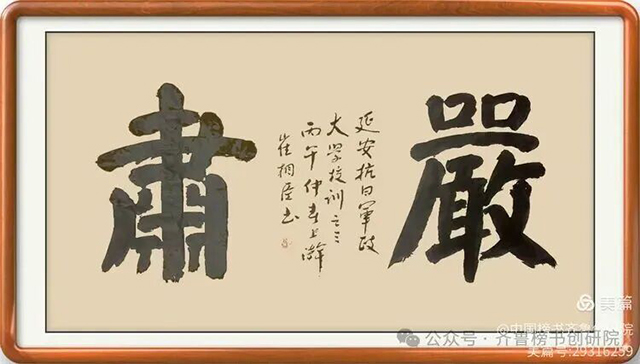 嚴肅
延安抗日軍政
大学校训之三
丙午仲春上澣
崔相臣书
美篇
@中国榜书齐鲁 院
公众号·齐鲁榜书创研院
美篇号:29316299